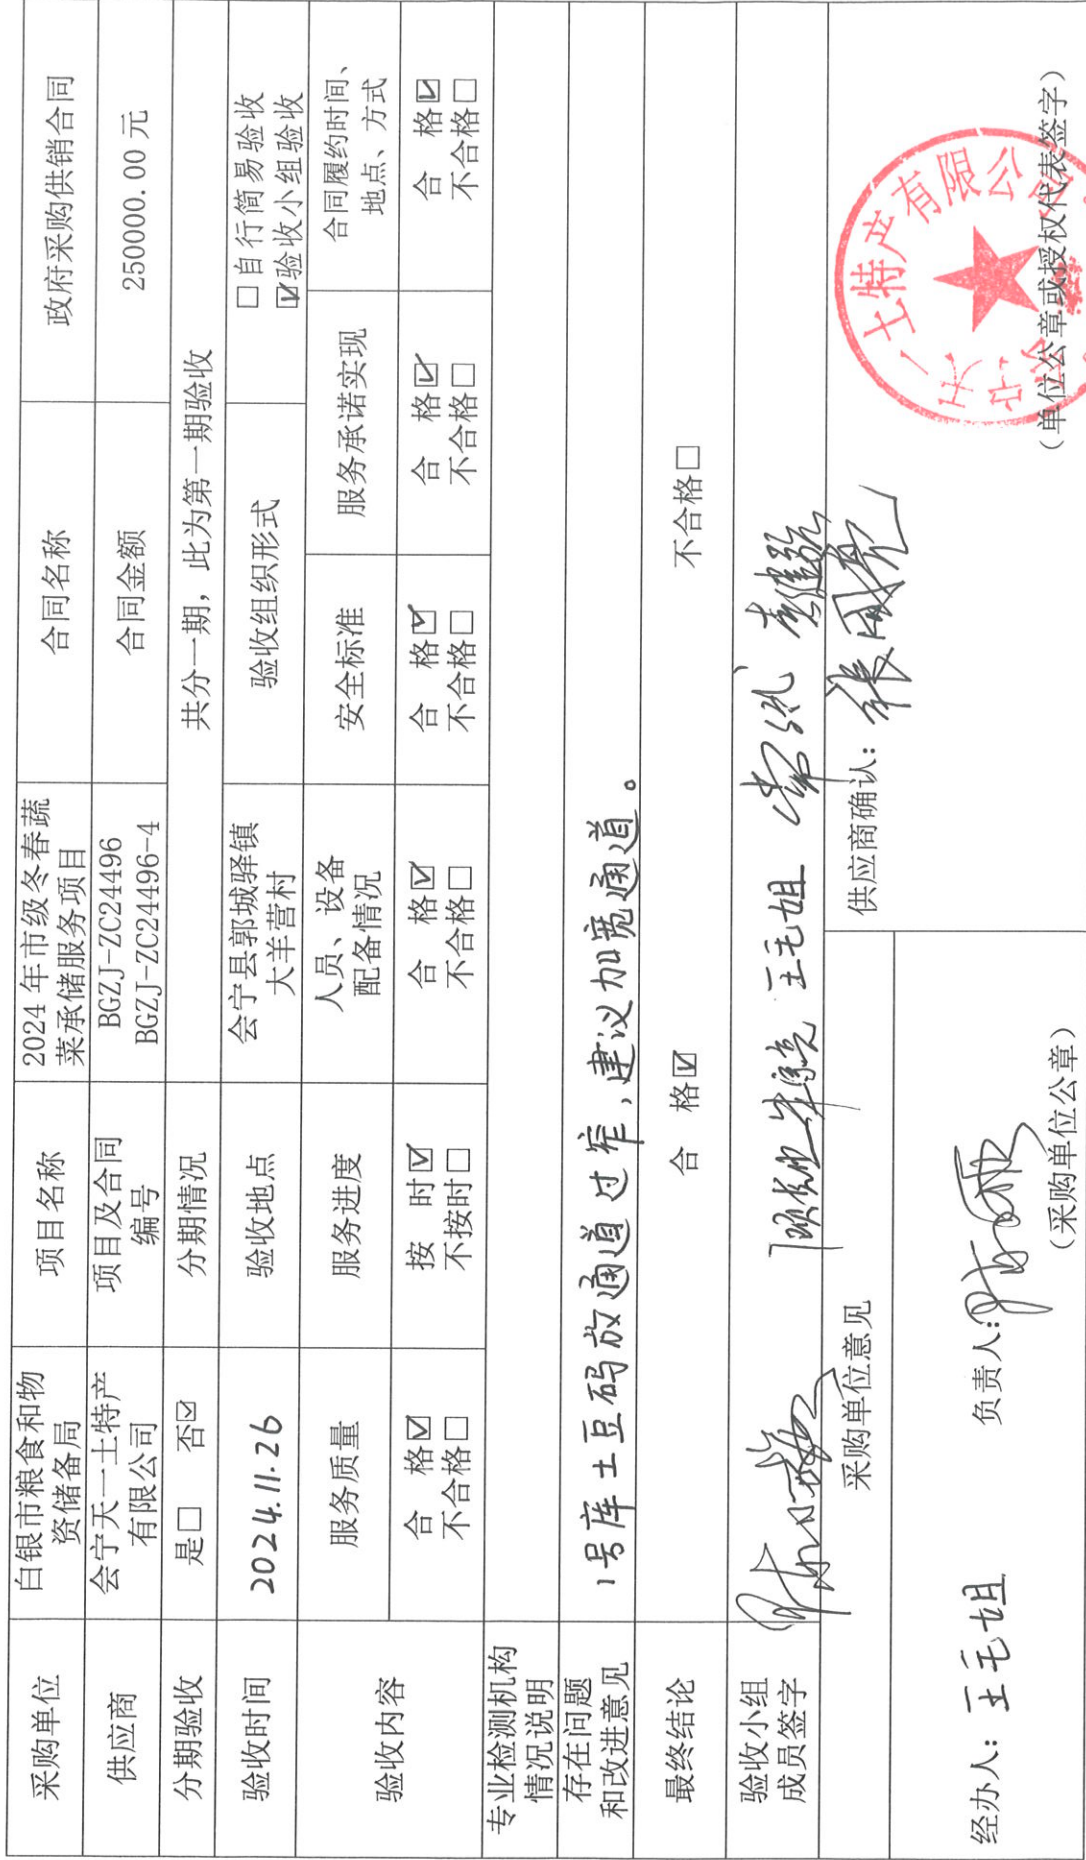 采购单位 白银市粮食和物资储备局 项目名称 2024年市级冬春蔬菜承储服务项目 合同名称 政府采购供销合同
供应商 会宁天一土特产有限公司 项目及合同编号 BGZJ-ZC24496 BGZJ-ZC24496-4 合同金额 250000.00 元
分期验收 是□ 否☑ 分期情况 共分一期，此为第一期验收
验收时间 2024.11.26 验收地点 会宁县郭城驿镇大羊营村 验收组织形式 □自行简易验收 ☑验收小组验收
验收内容 服务质量 服务进度 人员、设备配备情况 安全标准 服务承诺实现 合同履约时间、地点、方式
合 格☑ 按 时☑ 合 格☑ 合 格☑ 合 格☑ 合 格☑
不合格□ 不按时□ 不合格□ 不合格□ 不合格□ 不合格□
专业检测机构情况说明
存在问题和改进意见 1号库土豆码放通道过窄，建议加宽通道。
最终结论 合 格☑ 不合格□
验收小组成员签字 王毛姐
采购单位意见 供应商确认：
经办人：王毛姐 负责人：
（采购单位公章） （单位公章或授权代表签字）
会宁天一土特产有限公司